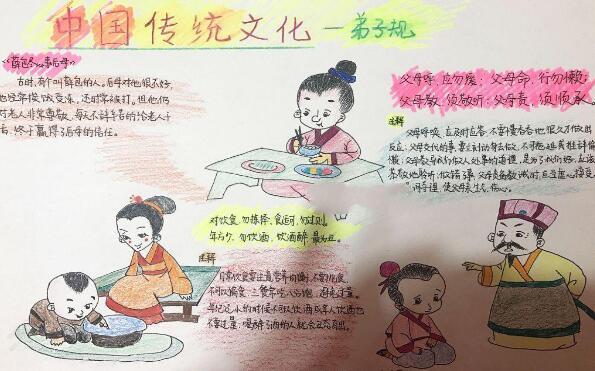 中国传统文化—弟子规
古时,有个叫薛包的人。后母对他很不好,
他经常挨饿受冻,还时常被打。但他仍
对老人非常尊敬,每天不辞辛苦的
终于赢得了后母的信任。
父母呼,应勿缓;父母命,行勿懒;
父母教,须敬听;父母责,须顺承。
注释
父母呼唤,应及时应答,不要慢吞吞地很久才做出
反应;父母交代的事,要立刻动身去做,不可拖延或推辞偷
懒;父母教导我们做人处事的道理,是为了我们好,应该
恭敬地聆听;做错了事,父母责备教诫时,应当虚心接受,
使父母生气、伤心。
对饮食,勿拣择,食适可,勿过则。
年方少,勿饮酒,饮酒醉,最为丑。
注释
日常饮食要注意营养均衡,不要挑食,
不可以偏食,三餐常吃八分饱,避免过量。
小的时候不可以饮酒,成年人饮酒也
不要过量,喝醉了酒的人就会丑态百出。